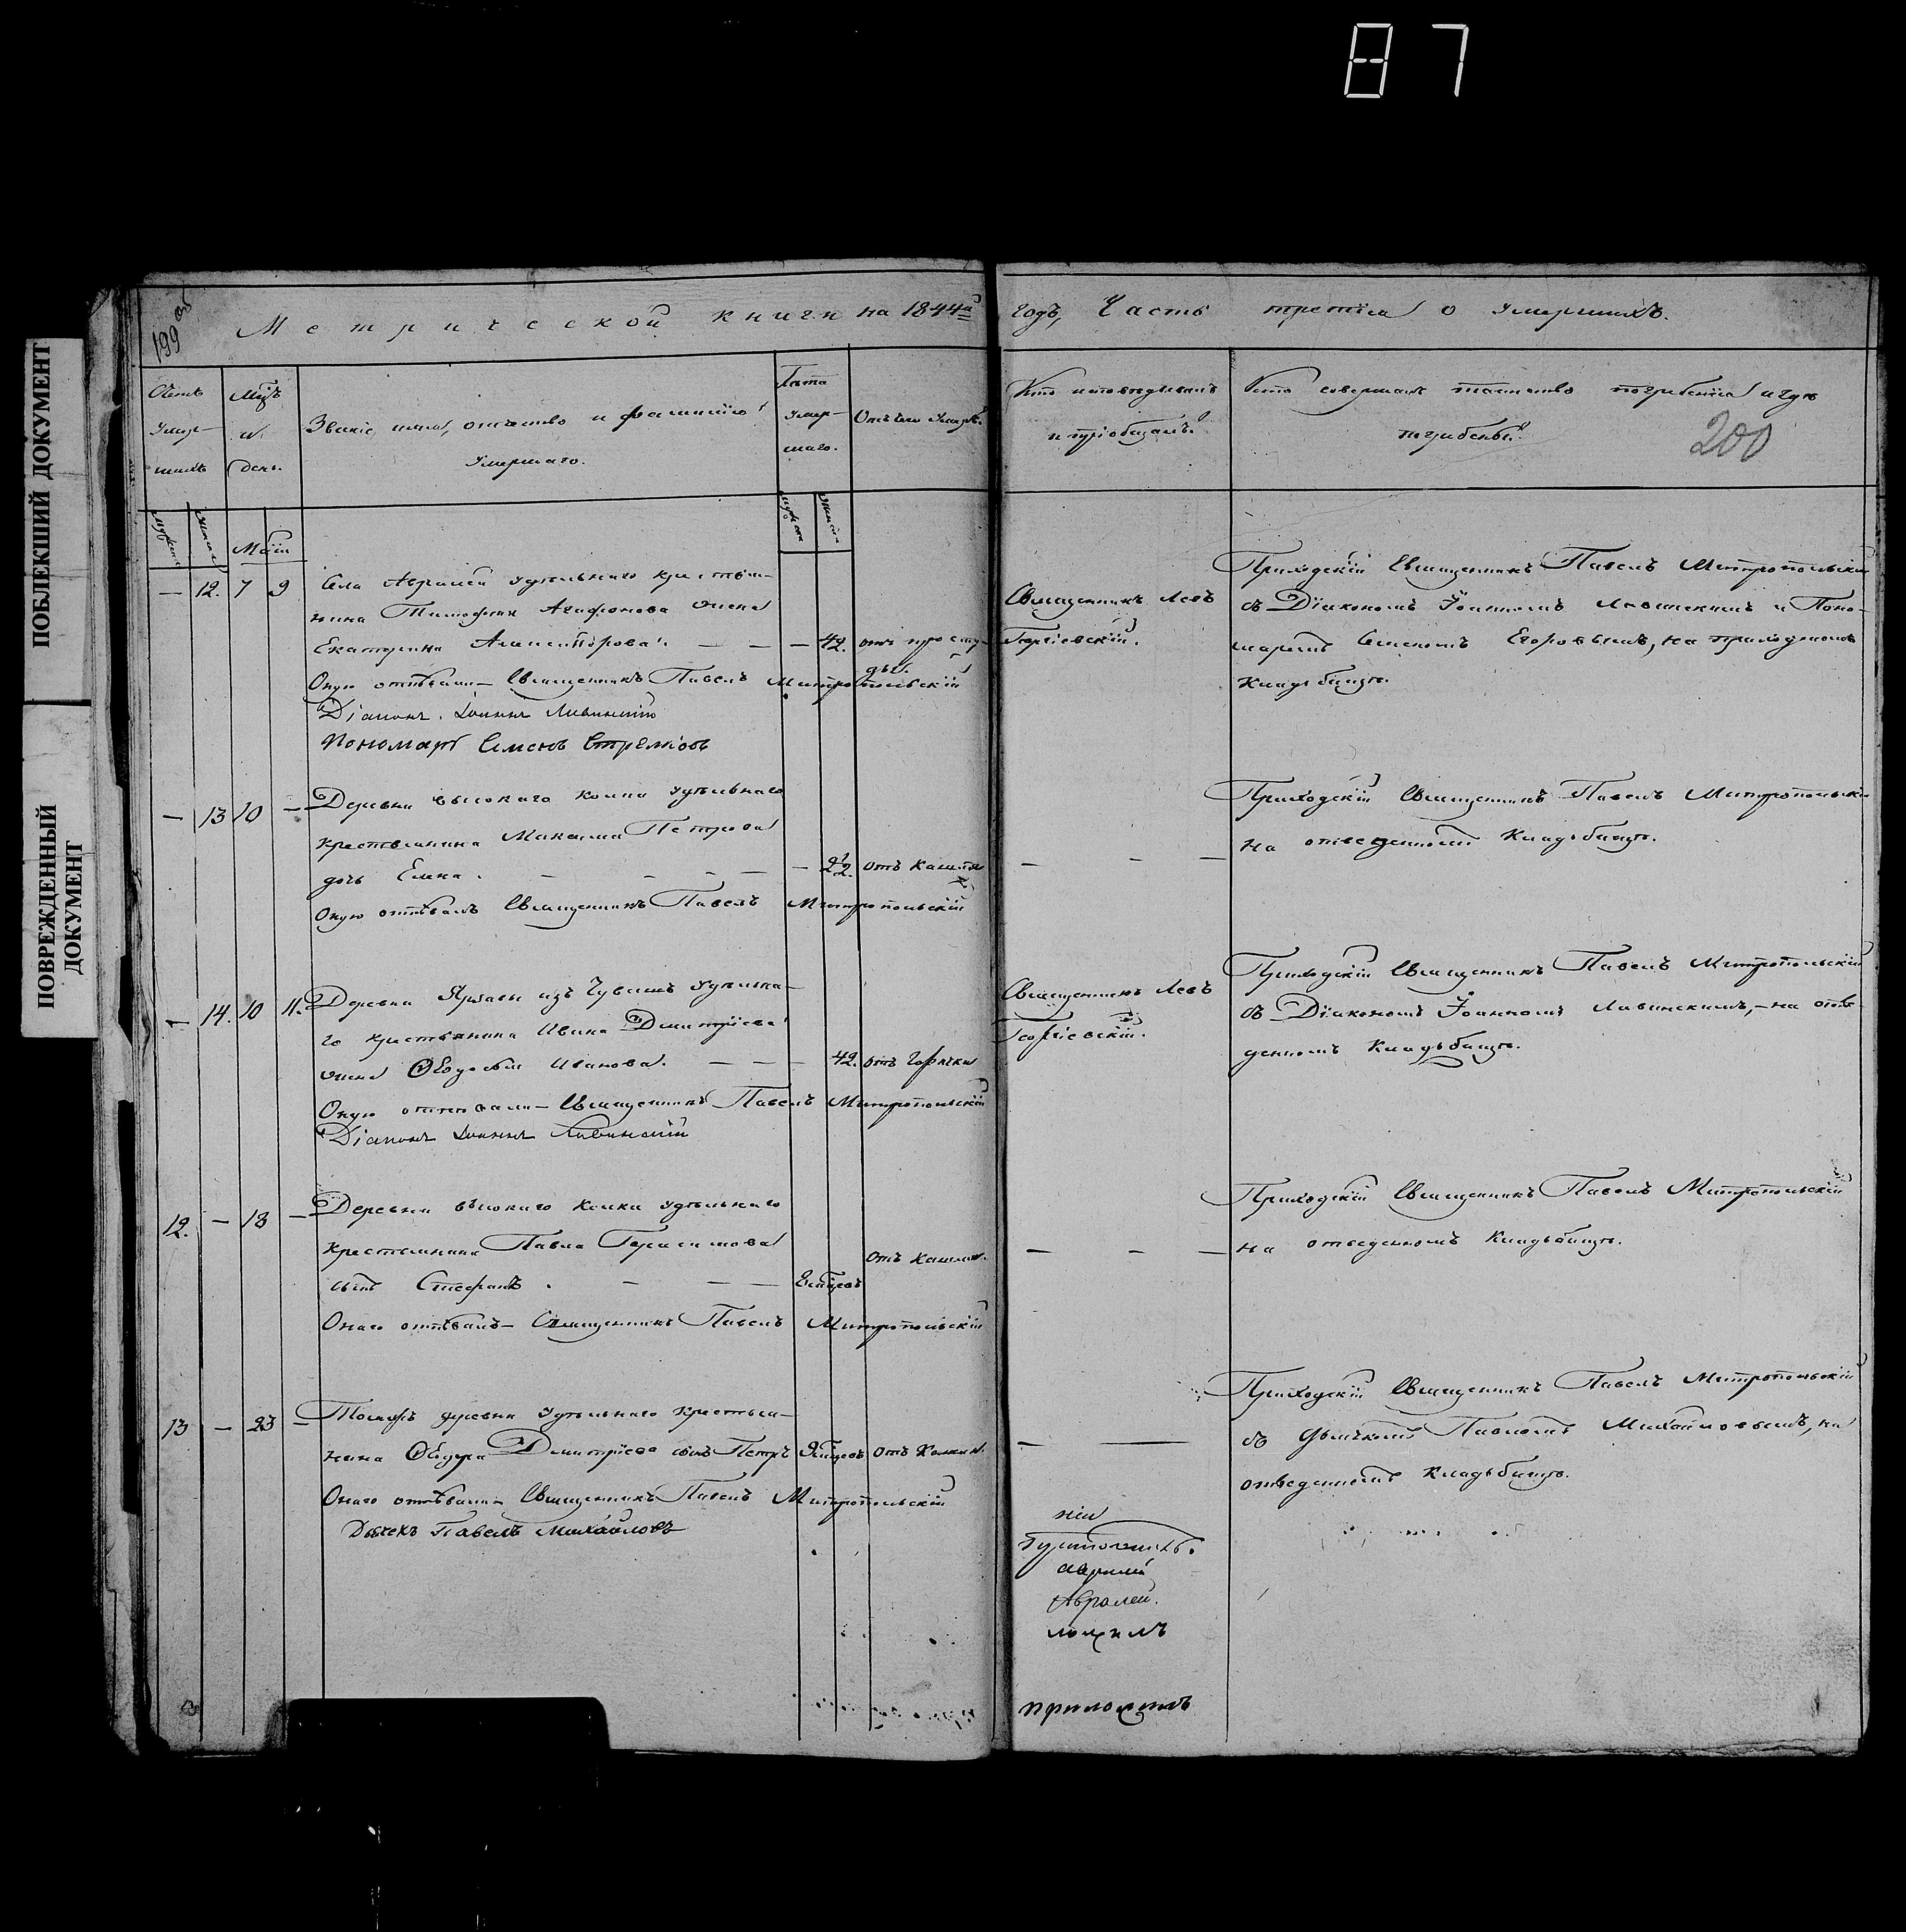 87
ПОБЛЕКШИЙ ДОКУМЕНТ
ПОВРЕЖДЕННЫЙ
ДОКУМЕНТ
199 об
Метрической книги на 1844й
годъ, Часть третiя о умершихъ.
200
Счетъ
умер-
шихъ
Мѣцъ
и
день.
Званiе, имя, отчество и фамилiя
умершаго.
Лѣта
умер-
шаго.
Отъ чего умеръ.
Кто исповѣдывалъ
и прiобщалъ.
Кто совершалъ таинство погребенiя и гдѣ
погребены.
Маiй
— 12. 7 9
Села Авралей удѣльнаго крестья-
нина Тимофея Агафонова жена
Екатерина — — — 42. отъ просту-
ды.
Оную отпѣвали – Священникъ Павелъ Митропольскiй
Дiаконъ Iоаннъ Ливинскiй
Пономарь Семенъ
Священникъ Левъ
Георгiевскiй.
Приходскiй Священникъ Павелъ Митропольскiй
съ Дiакономъ Iоанномъ Ливинскимъ и Поно-
маремъ Семеномъ Егоровымъ, на приходскомъ
кладьбищѣ.
— 13 10 —
Деревни высокаго колка удѣльнаго
крестьянина Михаила Петрова
дочь — — — — отъ кашля
Оную отпѣвалъ Священникъ Павелъ Митропольскiй
— — —
Приходскiй Священникъ Павелъ Митропольскiй
на отведенномъ Кладьбищѣ.
— 14. 10 11.
Деревни изъ Чувашъ удѣльна-
го крестьянина Ивана Дмитрiева
жена Ѳедосья Иванова. — — — 42. отъ горячки
Оную отпѣвали – Священникъ Павелъ Митропольскiй
Дiаконъ Iоаннъ Ливинскiй
Священникъ Левъ
Георгiевскiй.
Приходскiй Священникъ Павелъ Митропольскiй
съ Дiакономъ Iоанномъ Ливинскимъ, – на отве-
денномъ Кладьбищѣ.
12. — 18 —
Деревни высокаго колка удѣльнаго
крестьянина Павла Герасимова
отъ кашля.
сынъ Стефанъ. — — —
Онаго отпѣвалъ – Священникъ Павелъ Митропольскiй
— — —
Приходскiй Священникъ Павелъ Митропольскiй
на отведенномъ Кладьбищѣ.
13 — 23 —
Тойжъ деревни удѣльнаго крестья-
нина Ѳедора Дмитрiева сынъ Петръ отъ кашля.
Онаго отпѣвали – Священникъ Павелъ Митропольскiй
Дьячекъ Павелъ Михайловъ
— —
Приходскiй Священникъ Павелъ Митропольскiй
съ Дьячкомъ Павломъ Михайловымъ, на
отведенномъ Кладьбищѣ.
нiи
Авралей.
приложилъ